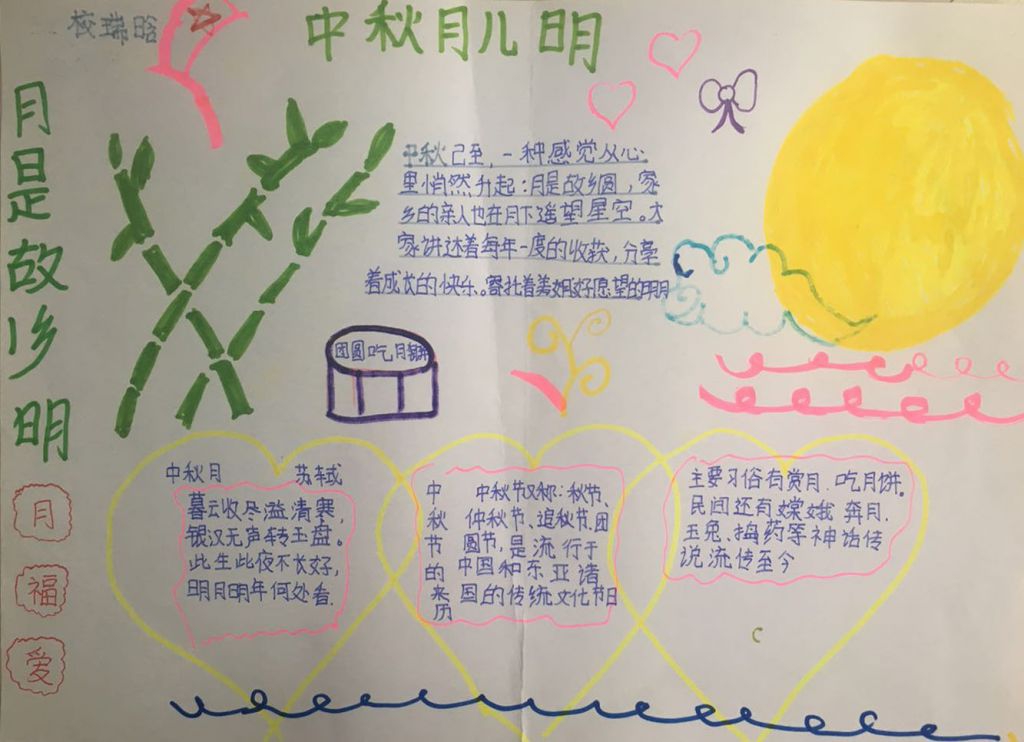 中秋月儿明
月是故乡明
月
福
爱
中秋已至，一种感觉从心
里悄然升起：月是故乡圆，家
乡的亲人也在月下遥望星空。大
家讲述着每年一度的收获，分享
着成长的快乐。寄托着美好愿望的明月
团圆吃月饼
中秋月 苏轼
暮云收尽溢清寒，
银汉无声转玉盘。
此生此夜不长好，
明月明年何处看.
中秋节的来历
中秋节又称：秋节、
仲秋节、追秋节、团
圆节，是流行于
中国和东亚诸
国的传统文化节日
主要习俗有赏月.吃月饼。
民间还有嫦娥奔月.
玉兔.捣药等神话传
说流传至今